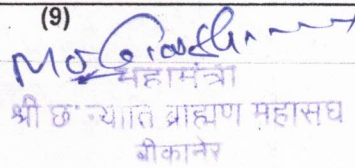 (9)
महामंत्री
श्री छः न्याति ब्राह्मण महासंघ
बीकानेर